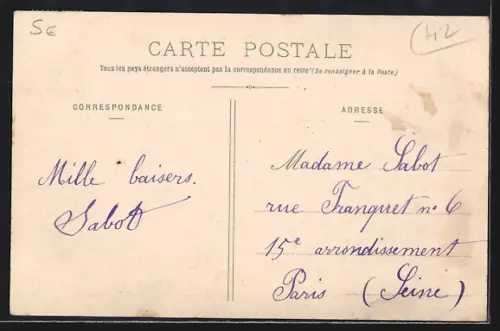 5€
42
CARTE POSTALE
Tous les pays étrangers n'acceptent pas la correspondance au recto (Se renseigner à la Poste)
CORRESPONDANCE
Mille baisers.
Sabot
ADRESSE
Madame Sabot
rue Franquet nº 6
15e arrondissement
Paris (Seine)